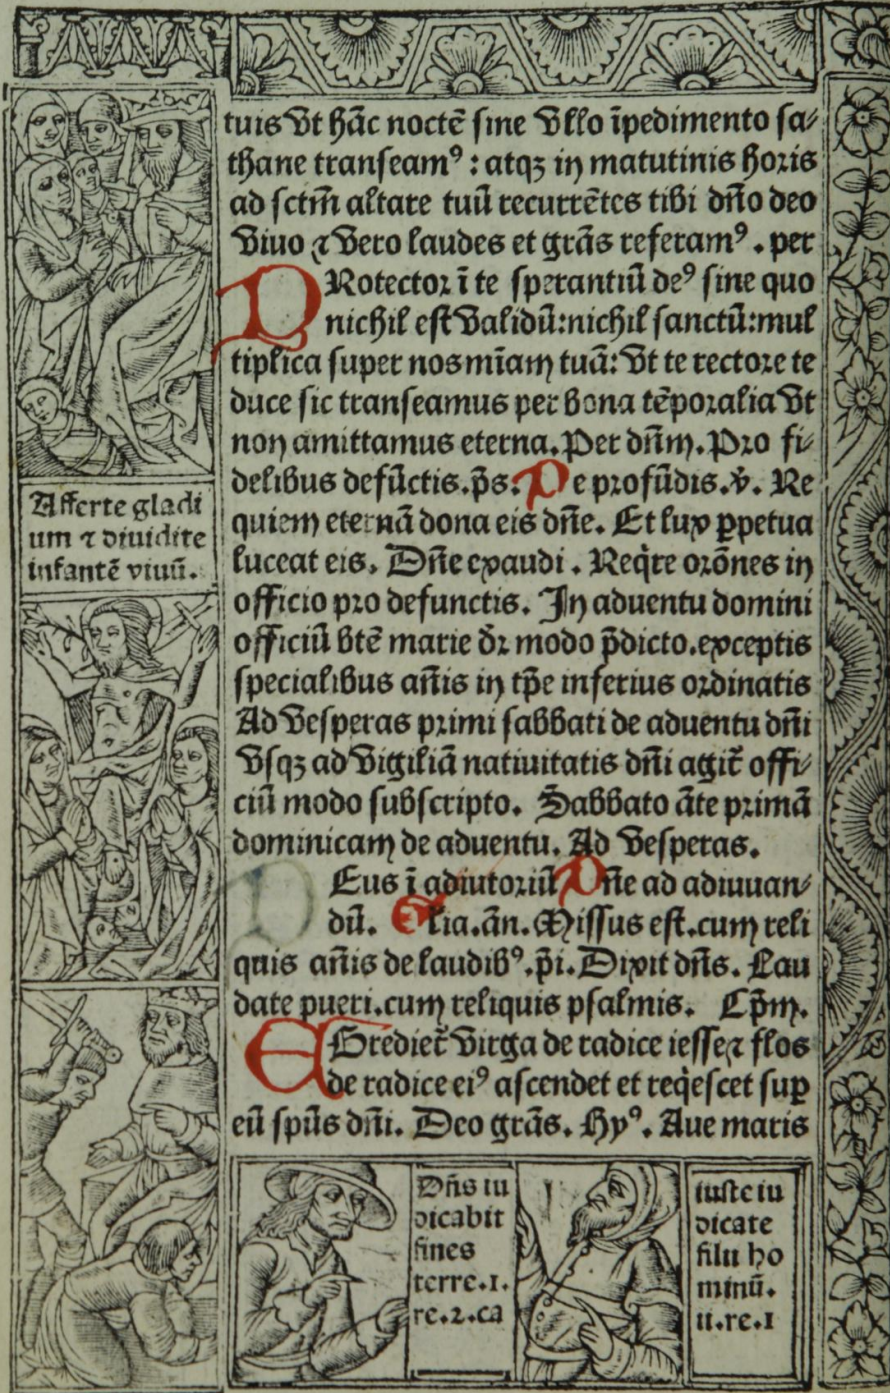 tuis vt hãc noctẽ sine vllo ĩpedimento sa⸗
thane transeamꝰ : atqꝫ in matutinis horis
ad sctm̃ altare tuũ recurrẽtes tibi dño deo
viuo ⁊ vero laudes et grãs referamꝰ . per
PRotector ĩ te sperantiũ deꝰ sine quo
nichil est validũ:nichil sanctũ:mul
tiplica super nos mĩam tuã: vt te rectore te
duce sic transeamus per bona tẽporalia vt
non amittamus eterna. Per dñm. Pro fi⸗
delibus defũctis. p̃s. De profũdis. ℣. Re
quiem eternã dona eis dñe. Et lux ꝑpetua
luceat eis. Dñe exaudi . Req̃re orões in
officio pro defunctis. In aduentu domini
officiũ btẽ marie dr̃ modo p̃dicto.exceptis
specialibus añis in tp̃e inferius ordinatis
Ad vesperas primi sabbati de aduentu dñi
vsqꝫ ad vigiliã natiuitatis dñi agit̃ offi⸗
ciũ modo subscripto. Sabbato ãte primã
dominicam de aduentu. Ad vesperas.
DEus ĩ adiutoriũ Dñe ad adiuuan⸗
dũ. Alĩa.ãn. Missus est.cum reli
quis añis de laudibꝰ.p̃i. Dixit dñs. Lau
date pueri.cum reliquis psalmis. Cp̃m.
EGrediet̃ virga de radice iesse ⁊ flos
de radice eiꝰ ascendet et req̃escet suꝑ
eũ spũs dñi. Deo grãs. Hyꝰ. Aue maris
Afferte gladi
um ⁊ diuidite
infantẽ viuũ.
Dñs iu
dicabit
fines
terre.1.
re.2.ca
iuste iu
dicate
filii ho
minũ.
ii.re.1